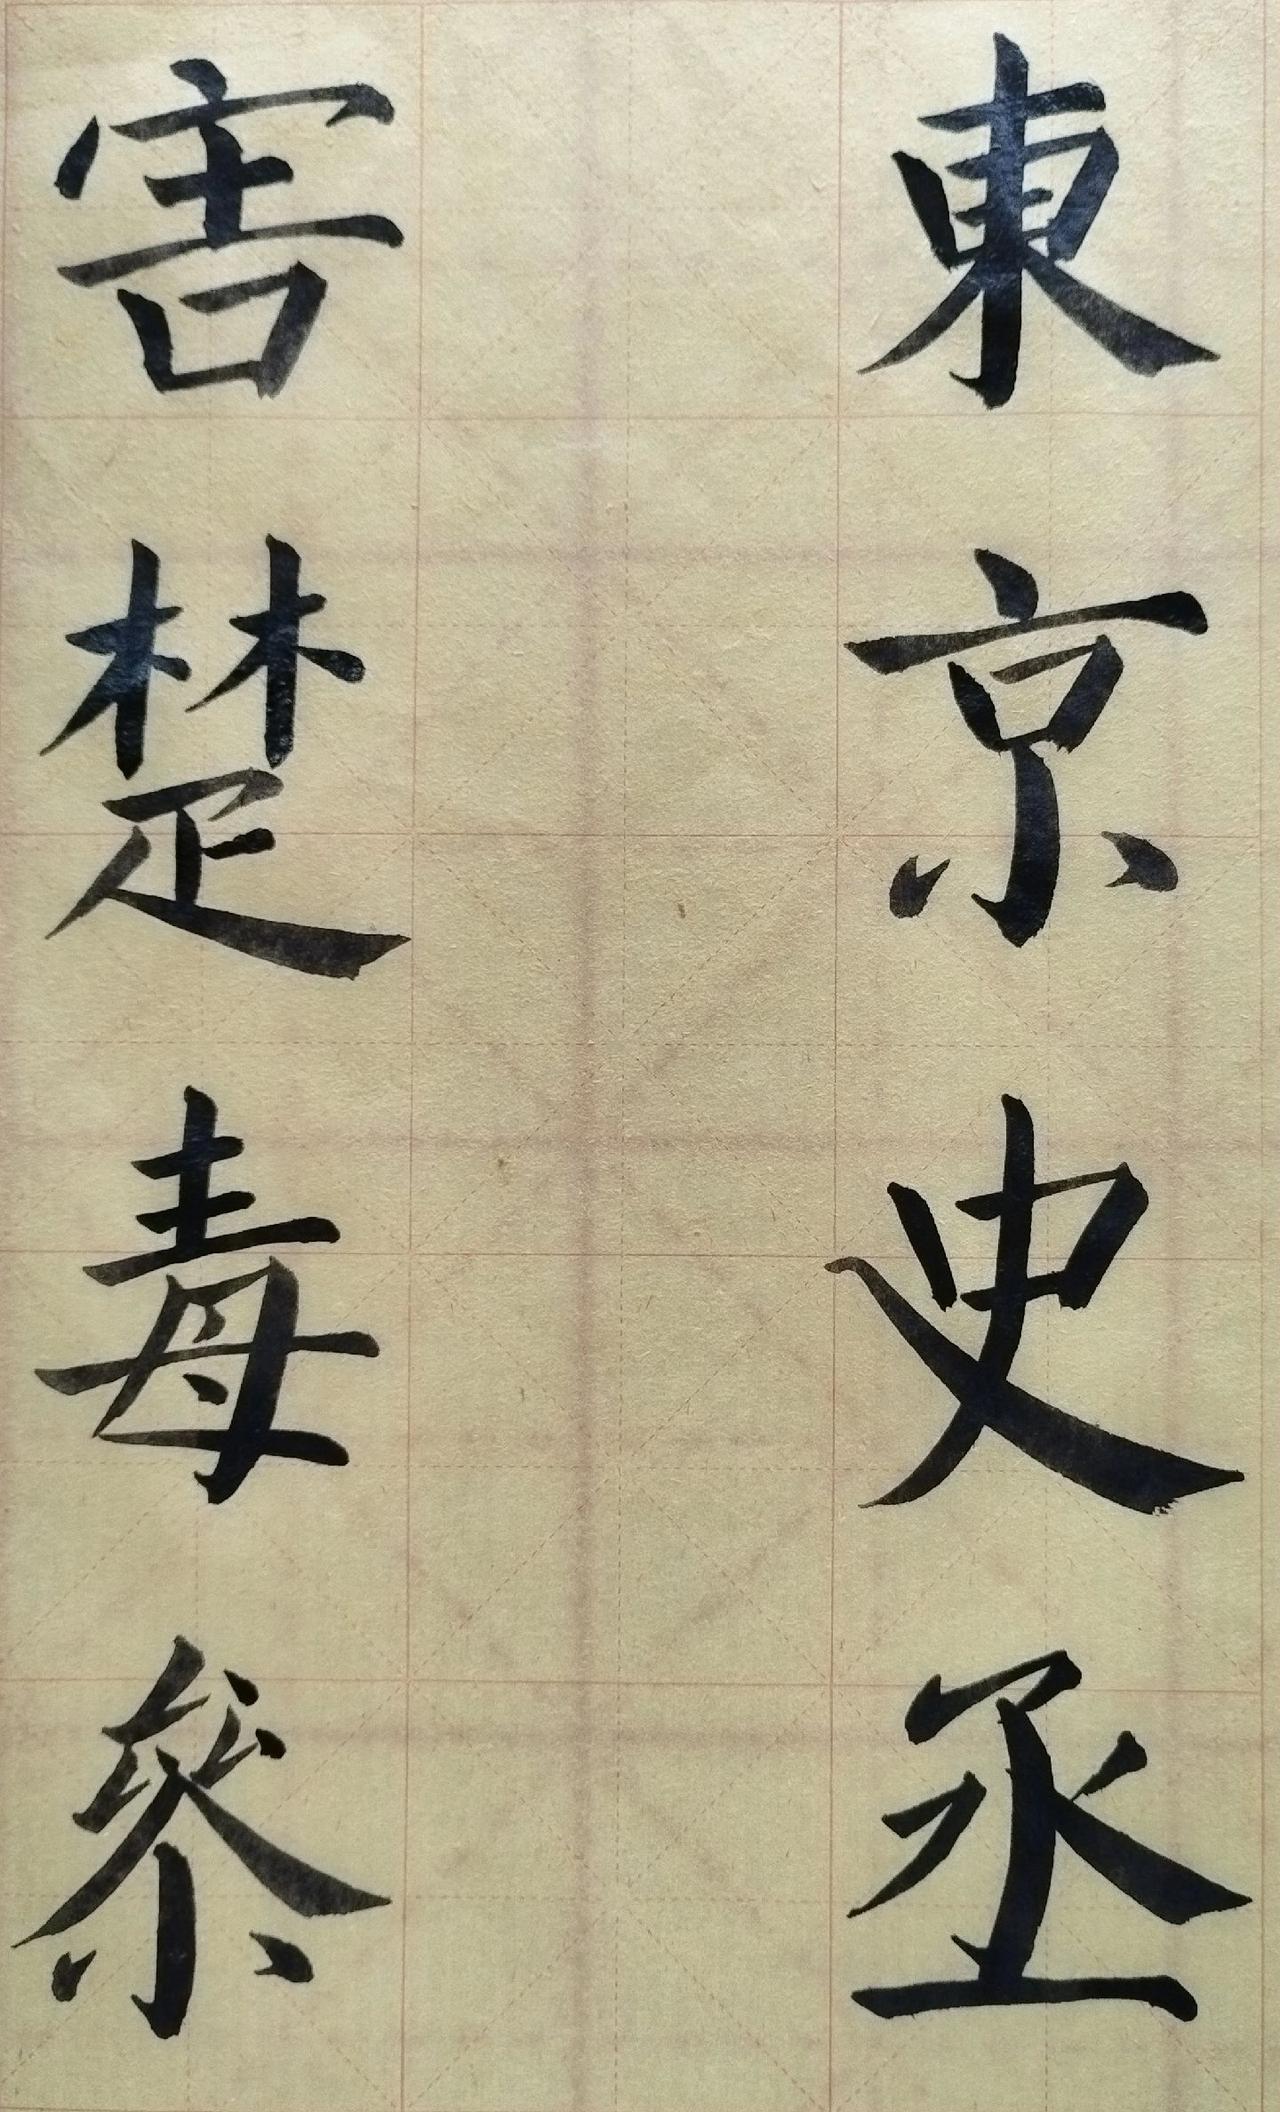 東京史丞
害楚毒参